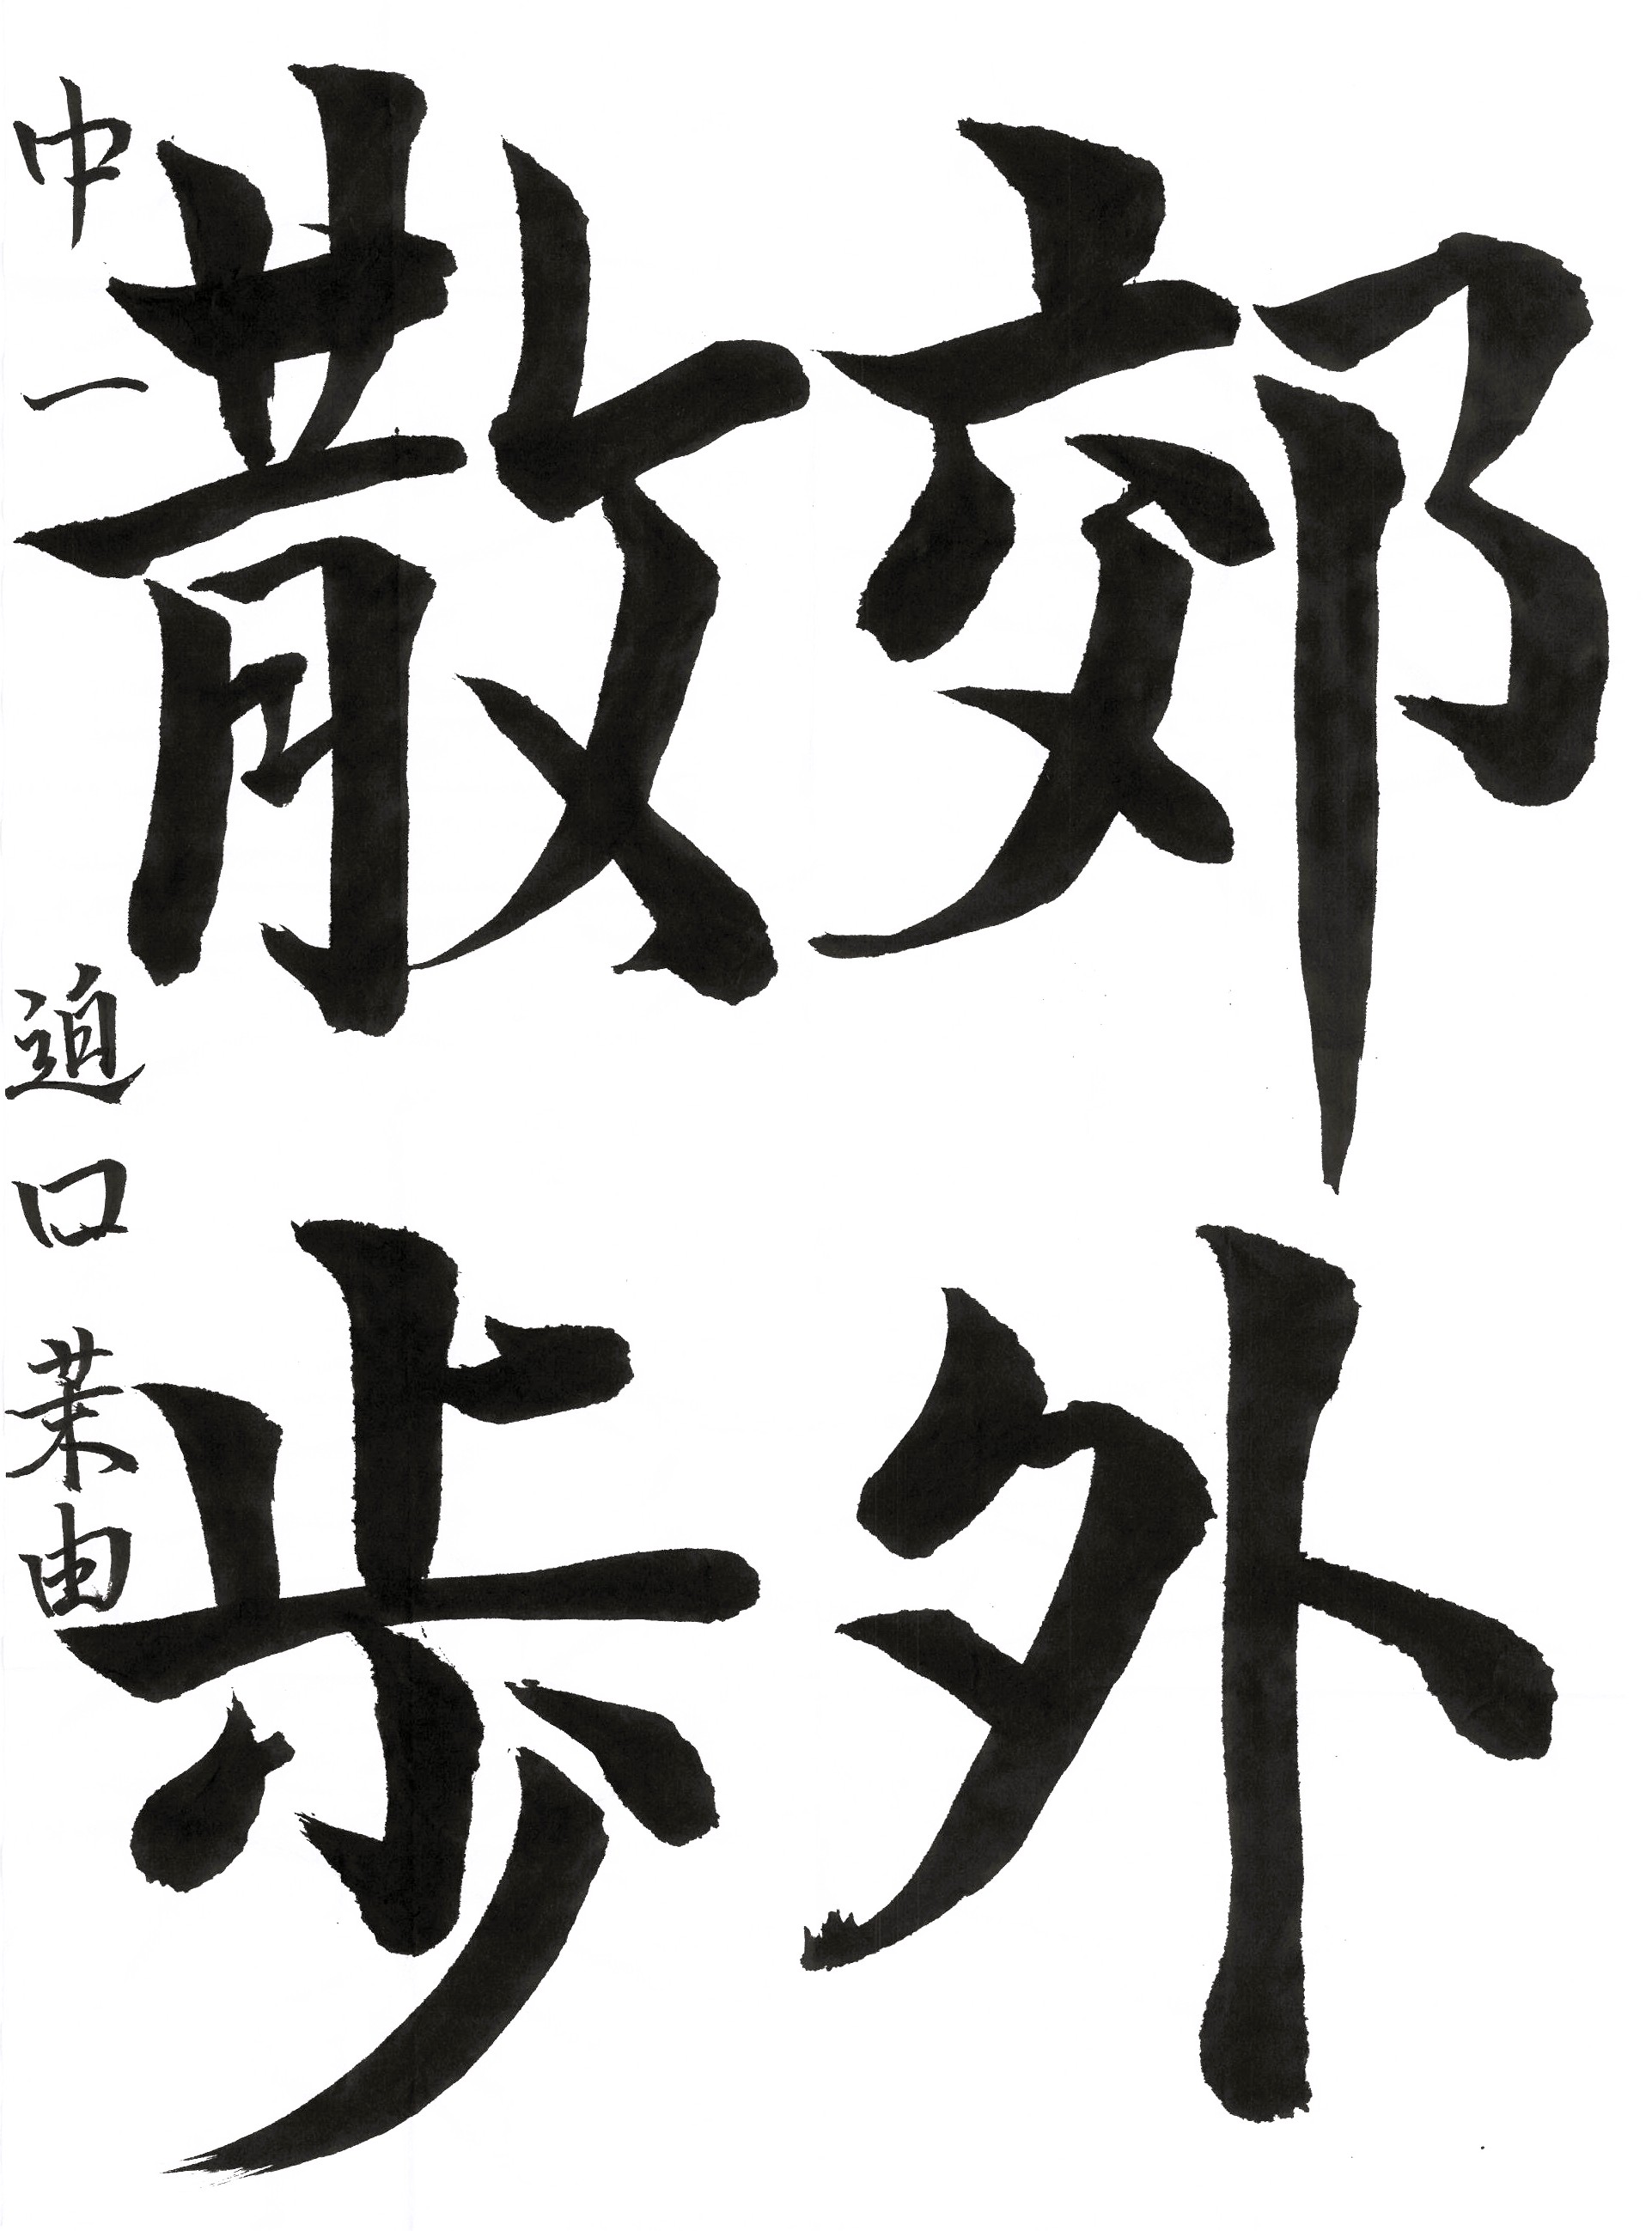 郊外
散歩
中一 迫口茉由